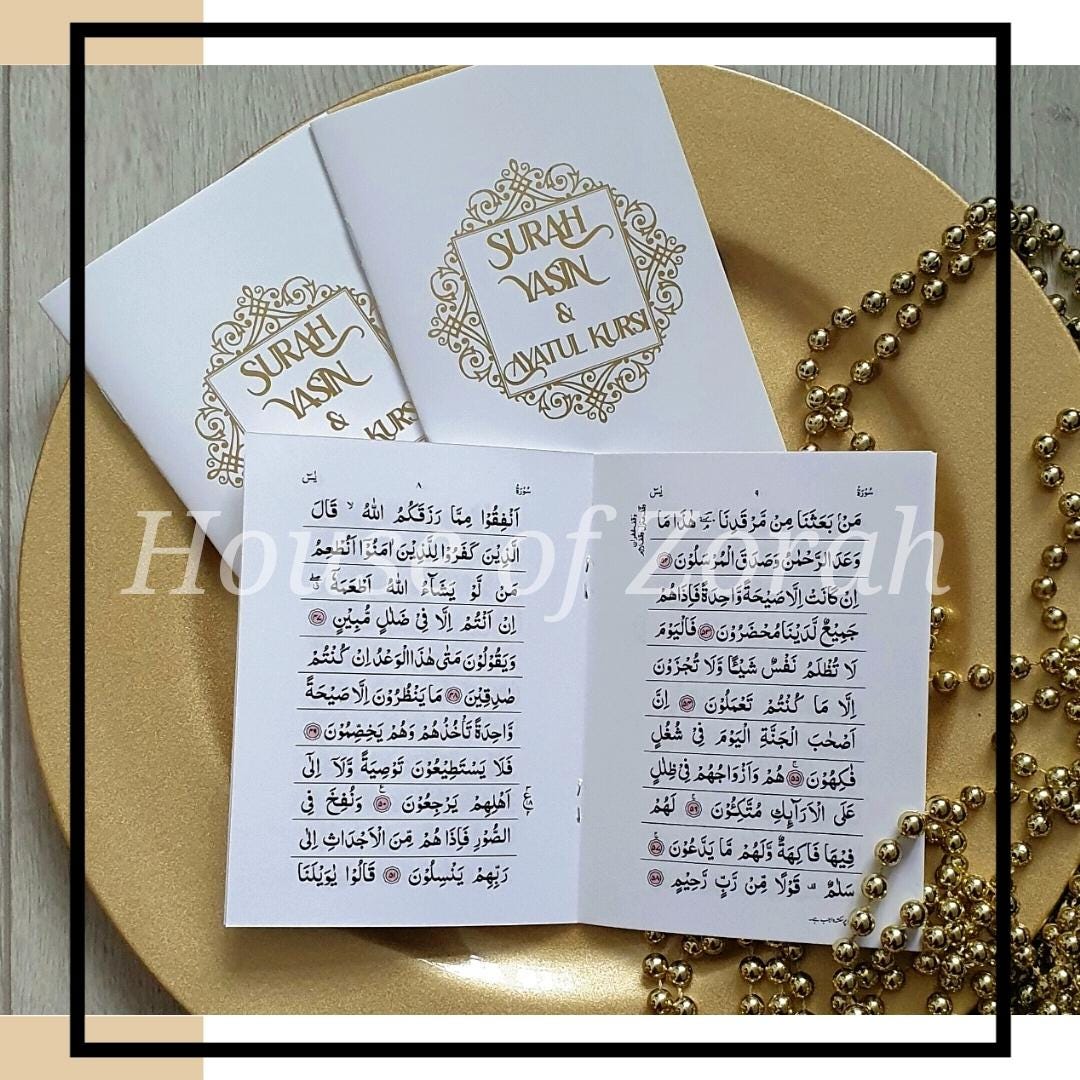 SURAH
YASIN
&
KURSI
SURAH
YASIN
&
AYATUL KURSI
House of Zorah
سُوْرَةُ ۸ يٰسٓ
اَنْفِقُوْا مِمَّا رَزَقَكُمُ اللّٰهُ ۙ قَالَ
الَّذِيْنَ كَفَرُوْا لِلَّذِيْنَ اٰمَنُوْٓا اَنُطْعِمُ
مَنْ لَّوْ يَشَآءُ اللّٰهُ اَطْعَمَهٗٓ ۖ
اِنْ اَنْتُمْ اِلَّا فِيْ ضَلٰلٍ مُّبِيْنٍ ۴۷
وَيَقُوْلُوْنَ مَتٰى هٰذَا الْوَعْدُ اِنْ كُنْتُمْ
صٰدِقِيْنَ ۴۸ مَا يَنْظُرُوْنَ اِلَّا صَيْحَةً
وَّاحِدَةً تَاْخُذُهُمْ وَهُمْ يَخِصِّمُوْنَ ۴۹
فَلَا يَسْتَطِيْعُوْنَ تَوْصِيَةً وَّلَآ اِلٰٓى
اَهْلِهِمْ يَرْجِعُوْنَ ۵۰ وَنُفِخَ فِي
الصُّوْرِ فَاِذَا هُمْ مِّنَ الْاَجْدَاثِ اِلٰى
رَبِّهِمْ يَنْسِلُوْنَ ۵۱ قَالُوْا يٰوَيْلَنَا
سُوْرَةُ ۹ يٰسٓ
مَنْۢ بَعَثَنَا مِنْ مَّرْقَدِنَا ۘ هٰذَا مَا
وَعَدَ الرَّحْمٰنُ وَصَدَقَ الْمُرْسَلُوْنَ ۵۲
اِنْ كَانَتْ اِلَّا صَيْحَةً وَّاحِدَةً فَاِذَا هُمْ
جَمِيْعٌ لَّدَيْنَا مُحْضَرُوْنَ ۵۳ فَالْيَوْمَ
لَا تُظْلَمُ نَفْسٌ شَيْـًٔا وَّلَا تُجْزَوْنَ
اِلَّا مَا كُنْتُمْ تَعْمَلُوْنَ ۵۴ اِنَّ
اَصْحٰبَ الْجَنَّةِ الْيَوْمَ فِيْ شُغُلٍ
فٰكِهُوْنَ ۵۵ هُمْ وَاَزْوَاجُهُمْ فِيْ ظِلٰلٍ
عَلَى الْاَرَآئِكِ مُتَّكِـُٔوْنَ ۵۶ لَهُمْ
فِيْهَا فَاكِهَةٌ وَّلَهُمْ مَّا يَدَّعُوْنَ ۵۷
سَلٰمٌ ۛ قَوْلًا مِّنْ رَّبٍّ رَّحِيْمٍ ۵۸